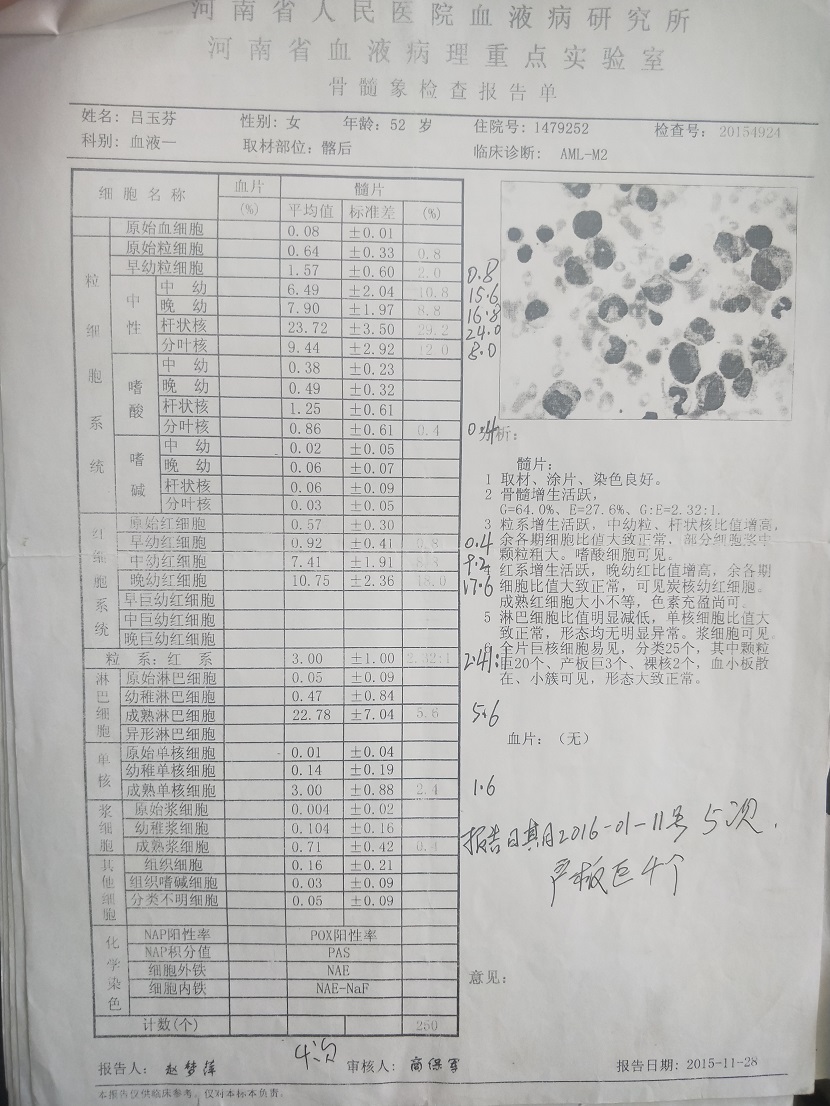 河南省人民医院血液病研究所
河南省血液病理重点实验室
骨髓象检查报告单
姓名: 吕玉芬 性别: 女 年龄: 52 岁 住院号: 1479252 检查号: 20154924
科别: 血液一 取材部位: 髂后 临床诊断: AML-M2
细胞名称 血片 髓片
(%) 平均值 标准差 (%)
原始血细胞 0.08 ±0.01
粒细胞系统
原始粒细胞 0.64 ±0.33 0.8
早幼粒细胞 1.57 ±0.60 2.0 0.8
中性
中幼 6.49 ±2.04 10.8 15.6
晚幼 7.90 ±1.97 8.8 16.8
杆状核 23.72 ±3.50 29.2 24.0
分叶核 9.44 ±2.92 12.0 8.0
嗜酸
中幼 0.38 ±0.23
晚幼 0.49 ±0.32
杆状核 1.25 ±0.61
分叶核 0.86 ±0.61 0.4 0.4
嗜碱
中幼 0.02 ±0.05
晚幼 0.06 ±0.07
杆状核 0.06 ±0.09
分叶核 0.03 ±0.05
红细胞系统
原始红细胞 0.57 ±0.30
早幼红细胞 0.92 ±0.41 0.8 0.4
中幼红细胞 7.41 ±1.91 8.8 9.2
晚幼红细胞 10.75 ±2.36 18.0 17.6
早巨幼红细胞
中巨幼红细胞
晚巨幼红细胞
粒系:红系 3.00 ±1.00 2.32:1 2.41:1
淋巴细胞
原始淋巴细胞 0.05 ±0.09
幼稚淋巴细胞 0.47 ±0.84
成熟淋巴细胞 22.78 ±7.04 5.6 5.6
异形淋巴细胞
单核
原始单核细胞 0.01 ±0.04
幼稚单核细胞 0.14 ±0.19
成熟单核细胞 3.00 ±0.88 2.4 1.6
浆细胞
原始浆细胞 0.004 ±0.02
幼稚浆细胞 0.104 ±0.16
成熟浆细胞 0.71 ±0.42 0.4
其他细胞
组织细胞 0.16 ±0.21
组织嗜碱细胞 0.03 ±0.09
分类不明细胞 0.05 ±0.09
化学染色
NAP阳性率 POX阳性率
NAP积分值 PAS
细胞外铁 NAE
细胞内铁 NAE-NaF
计数(个) 250
分析:
髓片:
1 取材、涂片、染色良好。
2 骨髓增生活跃,
G=64.0%、E=27.6%、G:E=2.32:1.
3 粒系增生活跃,中幼粒、杆状核比值增高,
余各期细胞比值大致正常,部分细胞浆中
颗粒粗大。嗜酸细胞可见。
红系增生活跃,晚幼红比值增高,余各期
细胞比值大致正常,可见炭核幼红细胞。
成熟红细胞大小不等,色素充盈尚可。
5 淋巴细胞比值明显减低,单核细胞比值大
致正常,形态均无明显异常。浆细胞可见。
全片巨核细胞易见,分类25个,其中颗粒
巨20个、产板巨3个、裸核2个,血小板散
在、小簇可见,形态大致正常。
血片:(无)
报告日期月2016-01-11号 5次.
产板巨4个
意见:
4次
报告人: 赵梦萍 审核人: 商保军 报告日期: 2015-11-28
本报告仅供临床参考,仅对本标本负责。